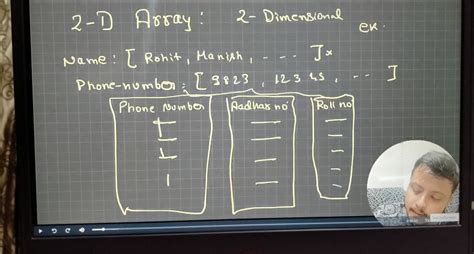 2-D Array: 2-Dimensional
ex.
Name: [ Rohit, Manish, - - - - ] x
Phone-number: [ 9823, 12345, - - ]
Phone Number Aadhar no Roll no